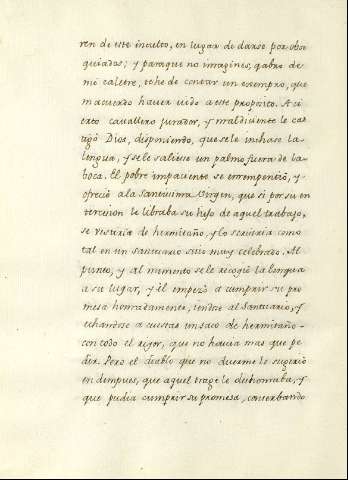 ren de este inculto, en lugar de darse por obse
quiados; y paraque no imagines, qabro de
mi caletre, tehe de contar un exempro, que
macuerdo haver oido a este proposito. A ci
erto cavallero jurador, y maldiciente le cas
tigò Dios, disponiendo, que sele inchase la
lengua, y sele saliese un palmo fuera de la
boca. El pobre impaciente se arrempentiò, y
ofreciò ala Santissima Virgen, que si por su in
tercesion le libraba su hijo de aquel trabajo,
se vistiria de hermitaño, y lo serviria como
tal en un santuario suio muy celebrado. Al
punto, y al momento sele recogiò la lengua
a su lugar, y èl empezò a cumprir su pro
mesa honradamente, iendose al Santuario, y
echandose a cuestas un saco de hermitaño
con todo el rigor, que no havia mas que pe
dir. Pero el diablo que no duerme le sugeriò
en dempues, que aquel trage le deshonraba, y
que pudia cumprir su promesa, conserbando